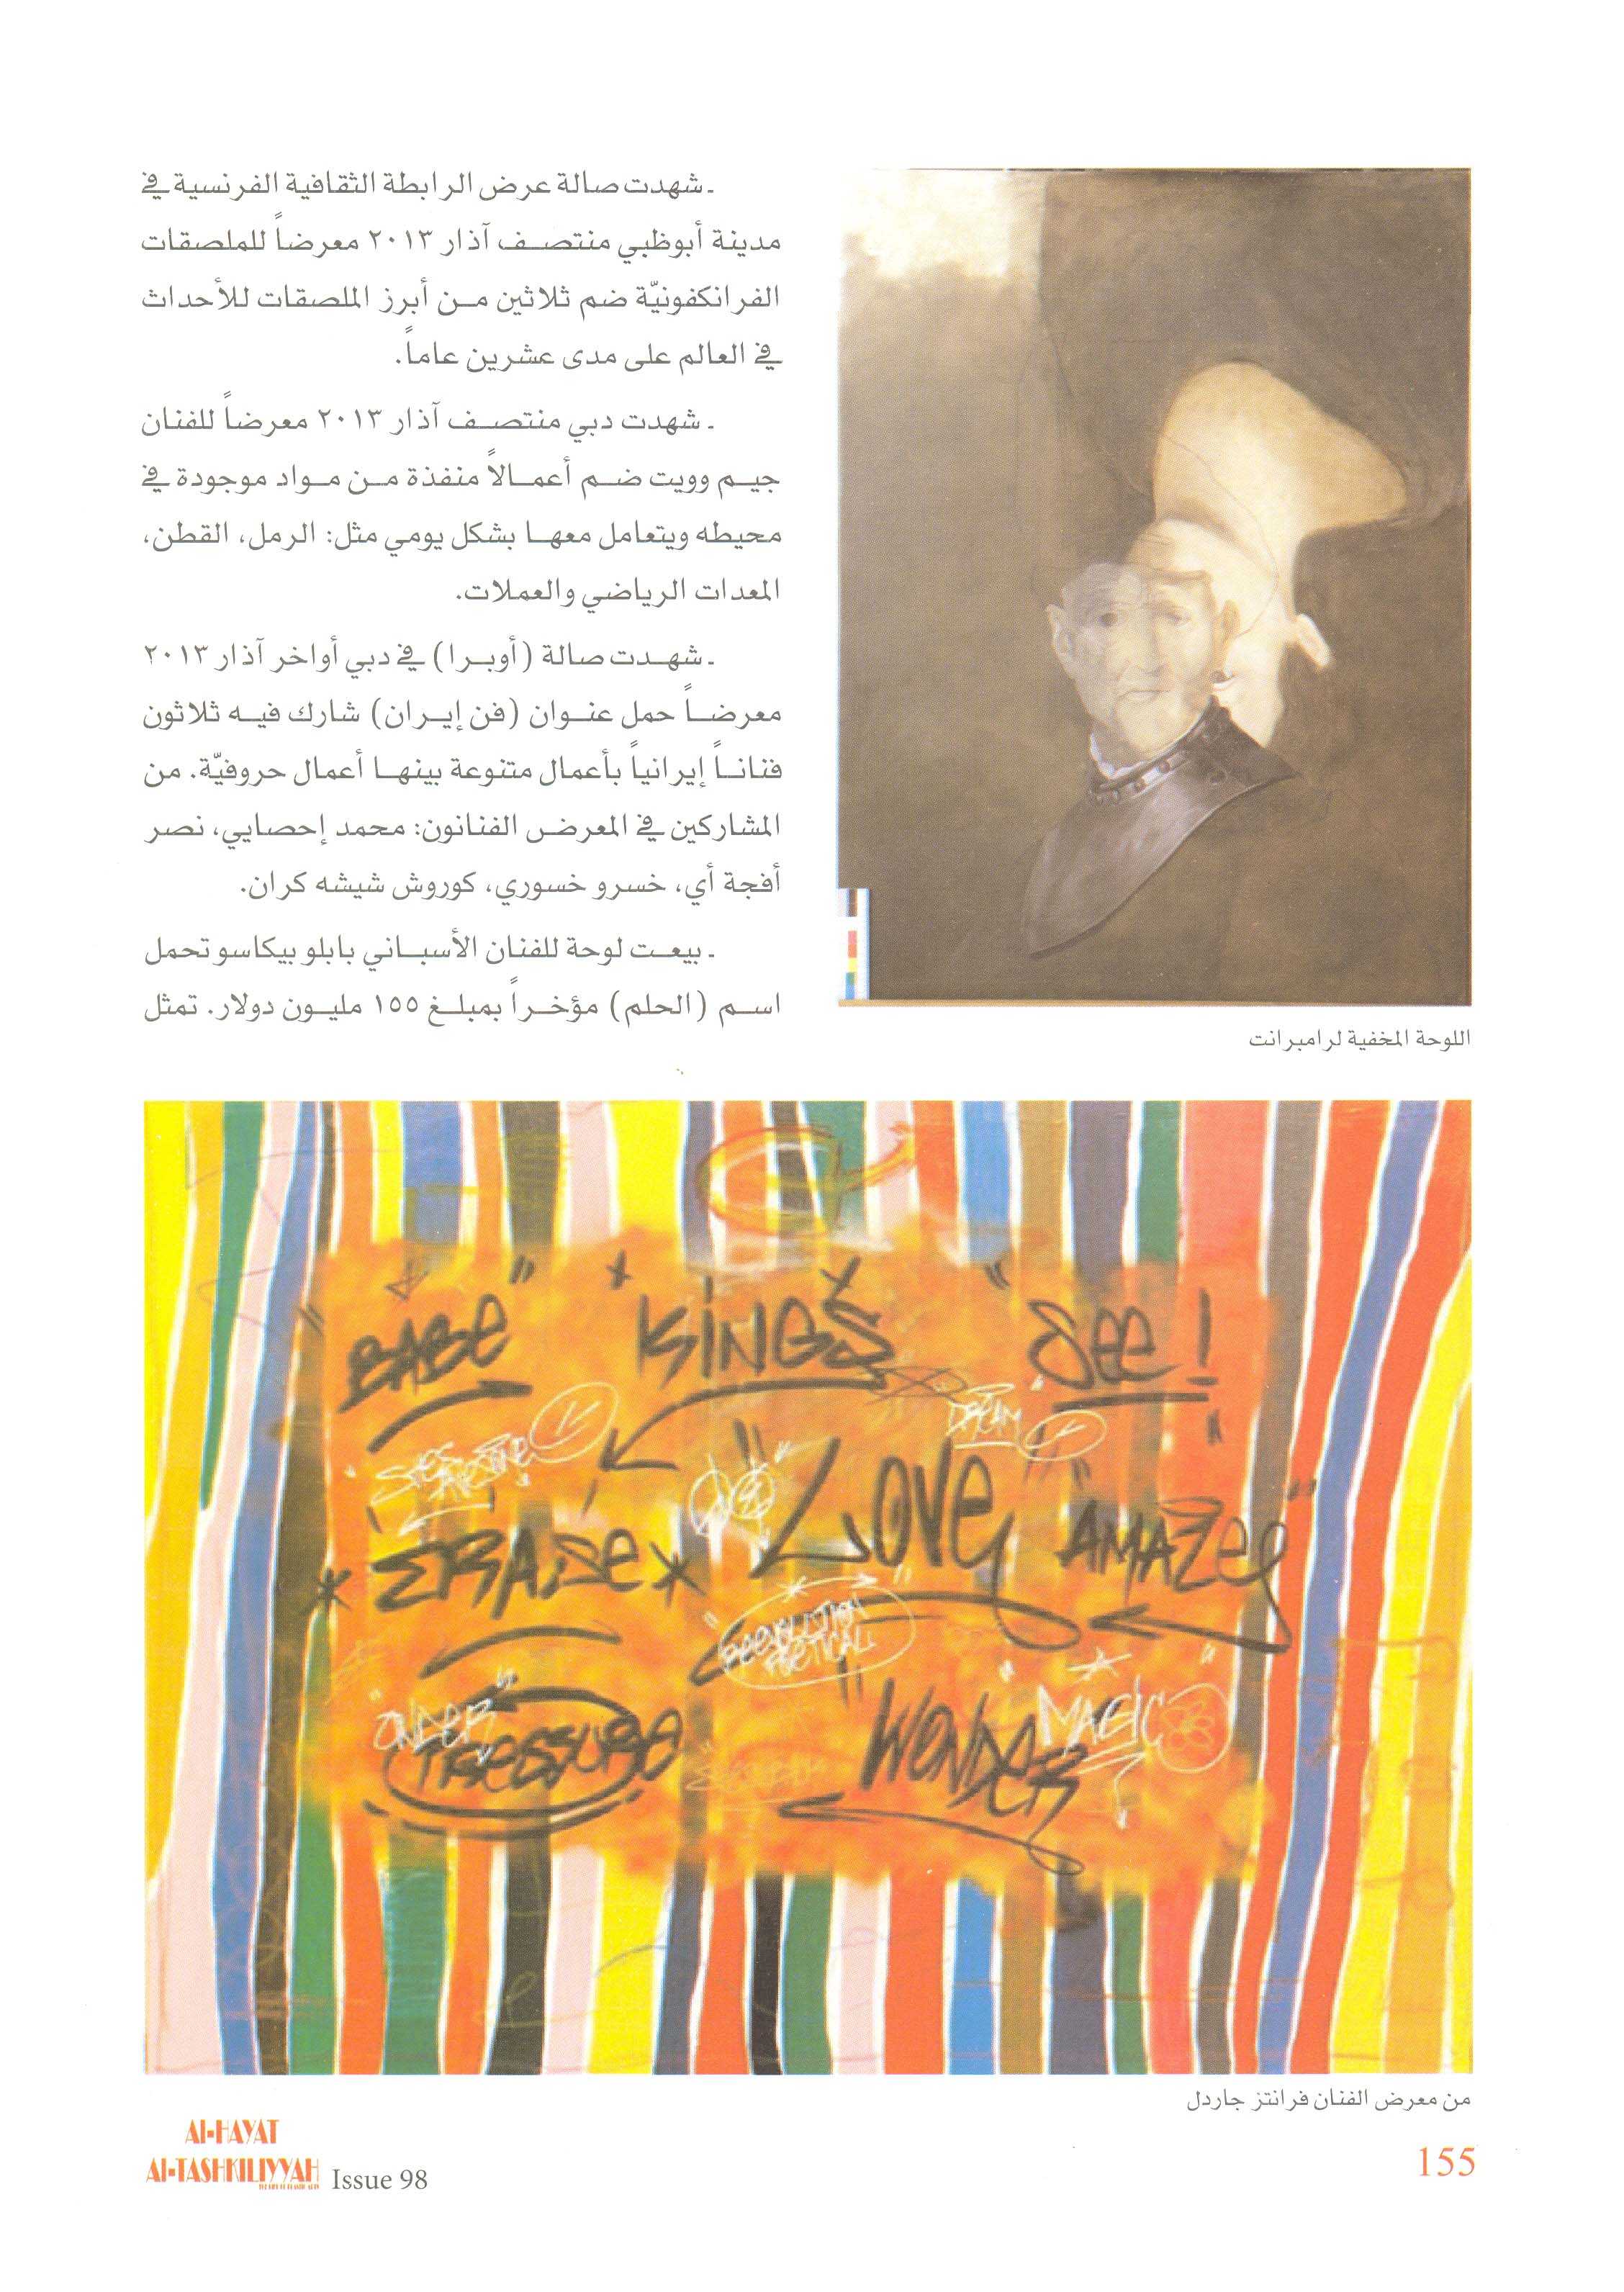 ـ شهدت صالة عرض الرابطة الثقافية الفرنسية في
مدينة أبوظبي منتصف آذار ٢٠١٣ معرضاً للملصقات
الفرانكفونيّة ضم ثلاثين من أبرز الملصقات للأحداث
في العالم على مدى عشرين عاماً.
ـ شهدت دبي منتصف آذار ٢٠١٣ معرضاً للفنان
جيم وويت ضم أعمالاً منفذة من مواد موجودة في
محيطه ويتعامل معها بشكل يومي مثل: الرمل، القطن،
المعدات الرياضي والعملات.
ـ شهدت صالة (أوبرا) في دبي أواخر آذار ٢٠١٣
معرضاً حمل عنوان (فن إيران) شارك فيه ثلاثون
فناناً إيرانياً بأعمال متنوعة بينها أعمال حروفيّة. من
المشاركين في المعرض الفنانون: محمد إحصايي، نصر
أفجة أي، خسرو خسوري، كوروش شيشه كران.
ـ بيعت لوحة للفنان الأسباني بابلو بيكاسو تحمل
اسم (الحلم) مؤخراً بمبلغ ١٥٥ مليون دولار. تمثل
اللوحة المخفية لرامبرانت
BABE" "KINGS "See!
DREAM
*ERASE* "Love "AMAZE"
POETICAL
"UNDER" "MAGIC
TRESSURE "WONDER
من معرض الفنان فرانتز جاردل
Al-HAYAT
Al-TASHKILIYYAH Issue 98
155